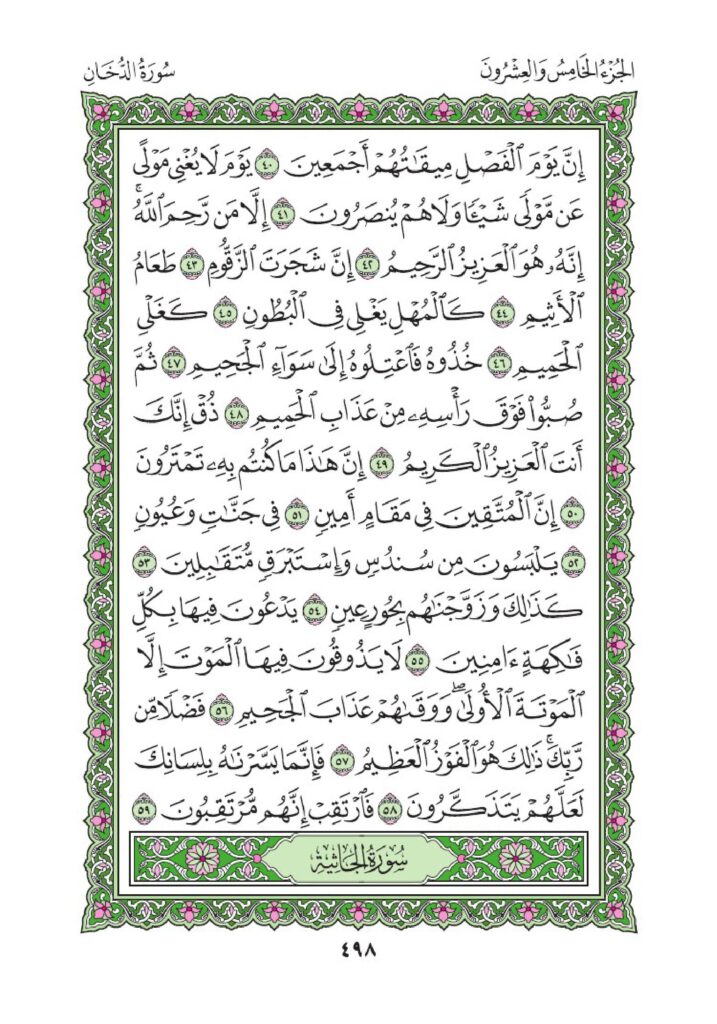 الجُزْءُ الخَامِسُ وَالعِشْرُونَ
سُورَةُ الدُّخَانِ
إِنَّ يَوْمَ ٱلْفَصْلِ مِيقَٰتُهُمْ أَجْمَعِينَ ٤٠ يَوْمَ لَا يُغْنِى مَوْلًى
عَن مَّوْلًى شَيْـًٔا وَلَا هُمْ يُنصَرُونَ ٤١ إِلَّا مَن رَّحِمَ ٱللَّهُ ۚ
إِنَّهُۥ هُوَ ٱلْعَزِيزُ ٱلرَّحِيمُ ٤٢ إِنَّ شَجَرَتَ ٱلزَّقُّومِ ٤٣ طَعَامُ
ٱلْأَثِيمِ ٤٤ كَٱلْمُهْلِ يَغْلِى فِى ٱلْبُطُونِ ٤٥ كَغَلْىِ
ٱلْحَمِيمِ ٤٦ خُذُوهُ فَٱعْتِلُوهُ إِلَىٰ سَوَآءِ ٱلْجَحِيمِ ٤٧ ثُمَّ
صُبُّوا۟ فَوْقَ رَأْسِهِۦ مِنْ عَذَابِ ٱلْحَمِيمِ ٤٨ ذُقْ إِنَّكَ
أَنتَ ٱلْعَزِيزُ ٱلْكَرِيمُ ٤٩ إِنَّ هَٰذَا مَا كُنتُم بِهِۦ تَمْتَرُونَ
٥٠ إِنَّ ٱلْمُتَّقِينَ فِى مَقَامٍ أَمِينٍ ٥١ فِى جَنَّٰتٍ وَعُيُونٍ
٥٢ يَلْبَسُونَ مِن سُندُسٍ وَإِسْتَبْرَقٍ مُّتَقَٰبِلِينَ ٥٣
كَذَٰلِكَ وَزَوَّجْنَٰهُم بِحُورٍ عِينٍ ٥٤ يَدْعُونَ فِيهَا بِكُلِّ
فَٰكِهَةٍ ءَامِنِينَ ٥٥ لَا يَذُوقُونَ فِيهَا ٱلْمَوْتَ إِلَّا
ٱلْمَوْتَةَ ٱلْأُولَىٰ ۖ وَوَقَىٰهُمْ عَذَابَ ٱلْجَحِيمِ ٥٦ فَضْلًا مِّن
رَّبِّكَ ۚ ذَٰلِكَ هُوَ ٱلْفَوْزُ ٱلْعَظِيمُ ٥٧ فَإِنَّمَا يَسَّرْنَٰهُ بِلِسَانِكَ
لَعَلَّهُمْ يَتَذَكَّرُونَ ٥٨ فَٱرْتَقِبْ إِنَّهُم مُّرْتَقِبُونَ ٥٩
سُورَةُ الجَاثِيَةِ
٤٩٨